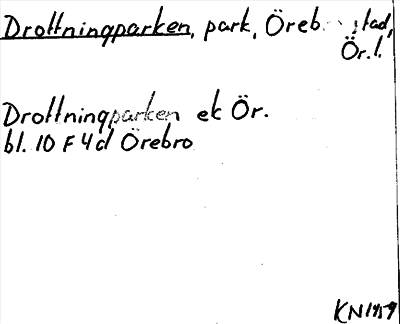 Drottningparken, park, Öreb. stad,
Ör. l.
Drottningparken ek Ör.
bl. 10 F 4d Örebro
KN 1959